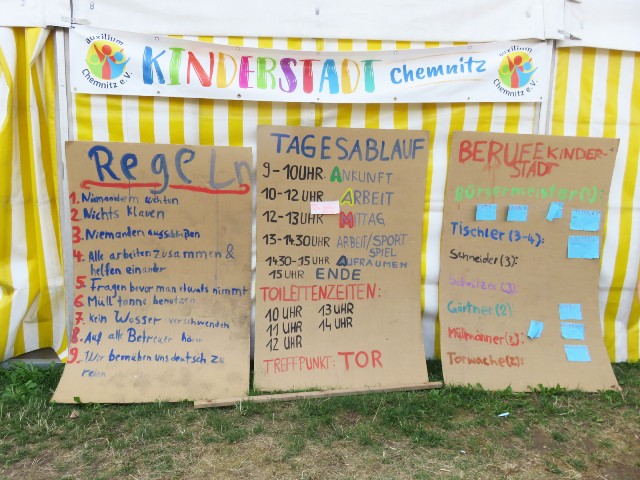 auxilium
Chemnitz e.V.
KINDERSTADT Chemnitz
auxilium
Chemnitz e.V.
Regeln
1. Niemandem wehtun
2. Nichts klauen
3. Niemanden ausschließen
4. Alle arbeiten zusammen &
helfen einander
5. Fragen bevor man etwas nimmt
6. Müll tonne benutzen
7. Kein Wasser verschwenden
8. Auf alle Betreuer hören
9. Wir bemühen uns deutsch zu
reden
TAGESABLAUF
9-10 UHR ANKUNFT
10-12 UHR ARBEIT
12-13 UHR MITTAG
13-14.30 UHR ARBEIT/SPORT
SPIEL
14.30-15 UHR AUFRAUMEN
15 UHR ENDE
TOILETTENZEITEN:
10 UHR 13 UHR
11 UHR 14 UHR
12 UHR
TREFFPUNKT: TOR
BERUFE KINDER-
STADT
Bürgermeister(1):
Tischler (3-4):
Schneider (3):
Gärtner (2)
Müllmänner (2):
Torwache (2):